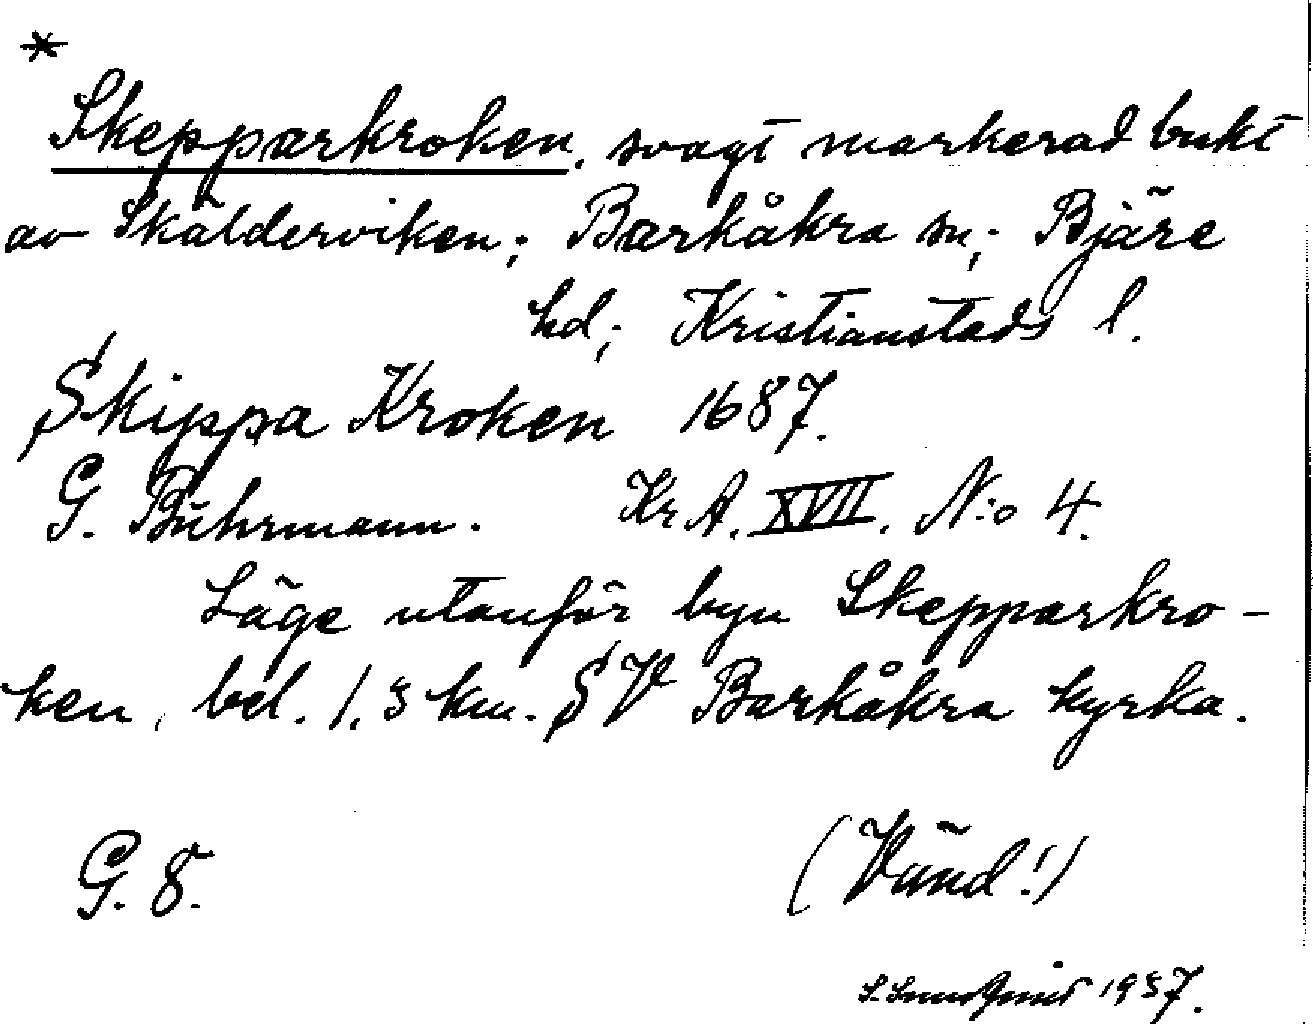 *
Skepparkroken, svagt markerad bukt
av Skälderviken; Barkåkra sn; Bjäre
hd; Kristianstads l.
Skippa Kroken 1687.
G. Buhrmann. KrA. XVII. N:o 4.
Läge utanför byn Skepparkro-
ken, bel. 1,5 km. SV Barkåkra kyrka.
G. 8.
(Vänd!)
1937.